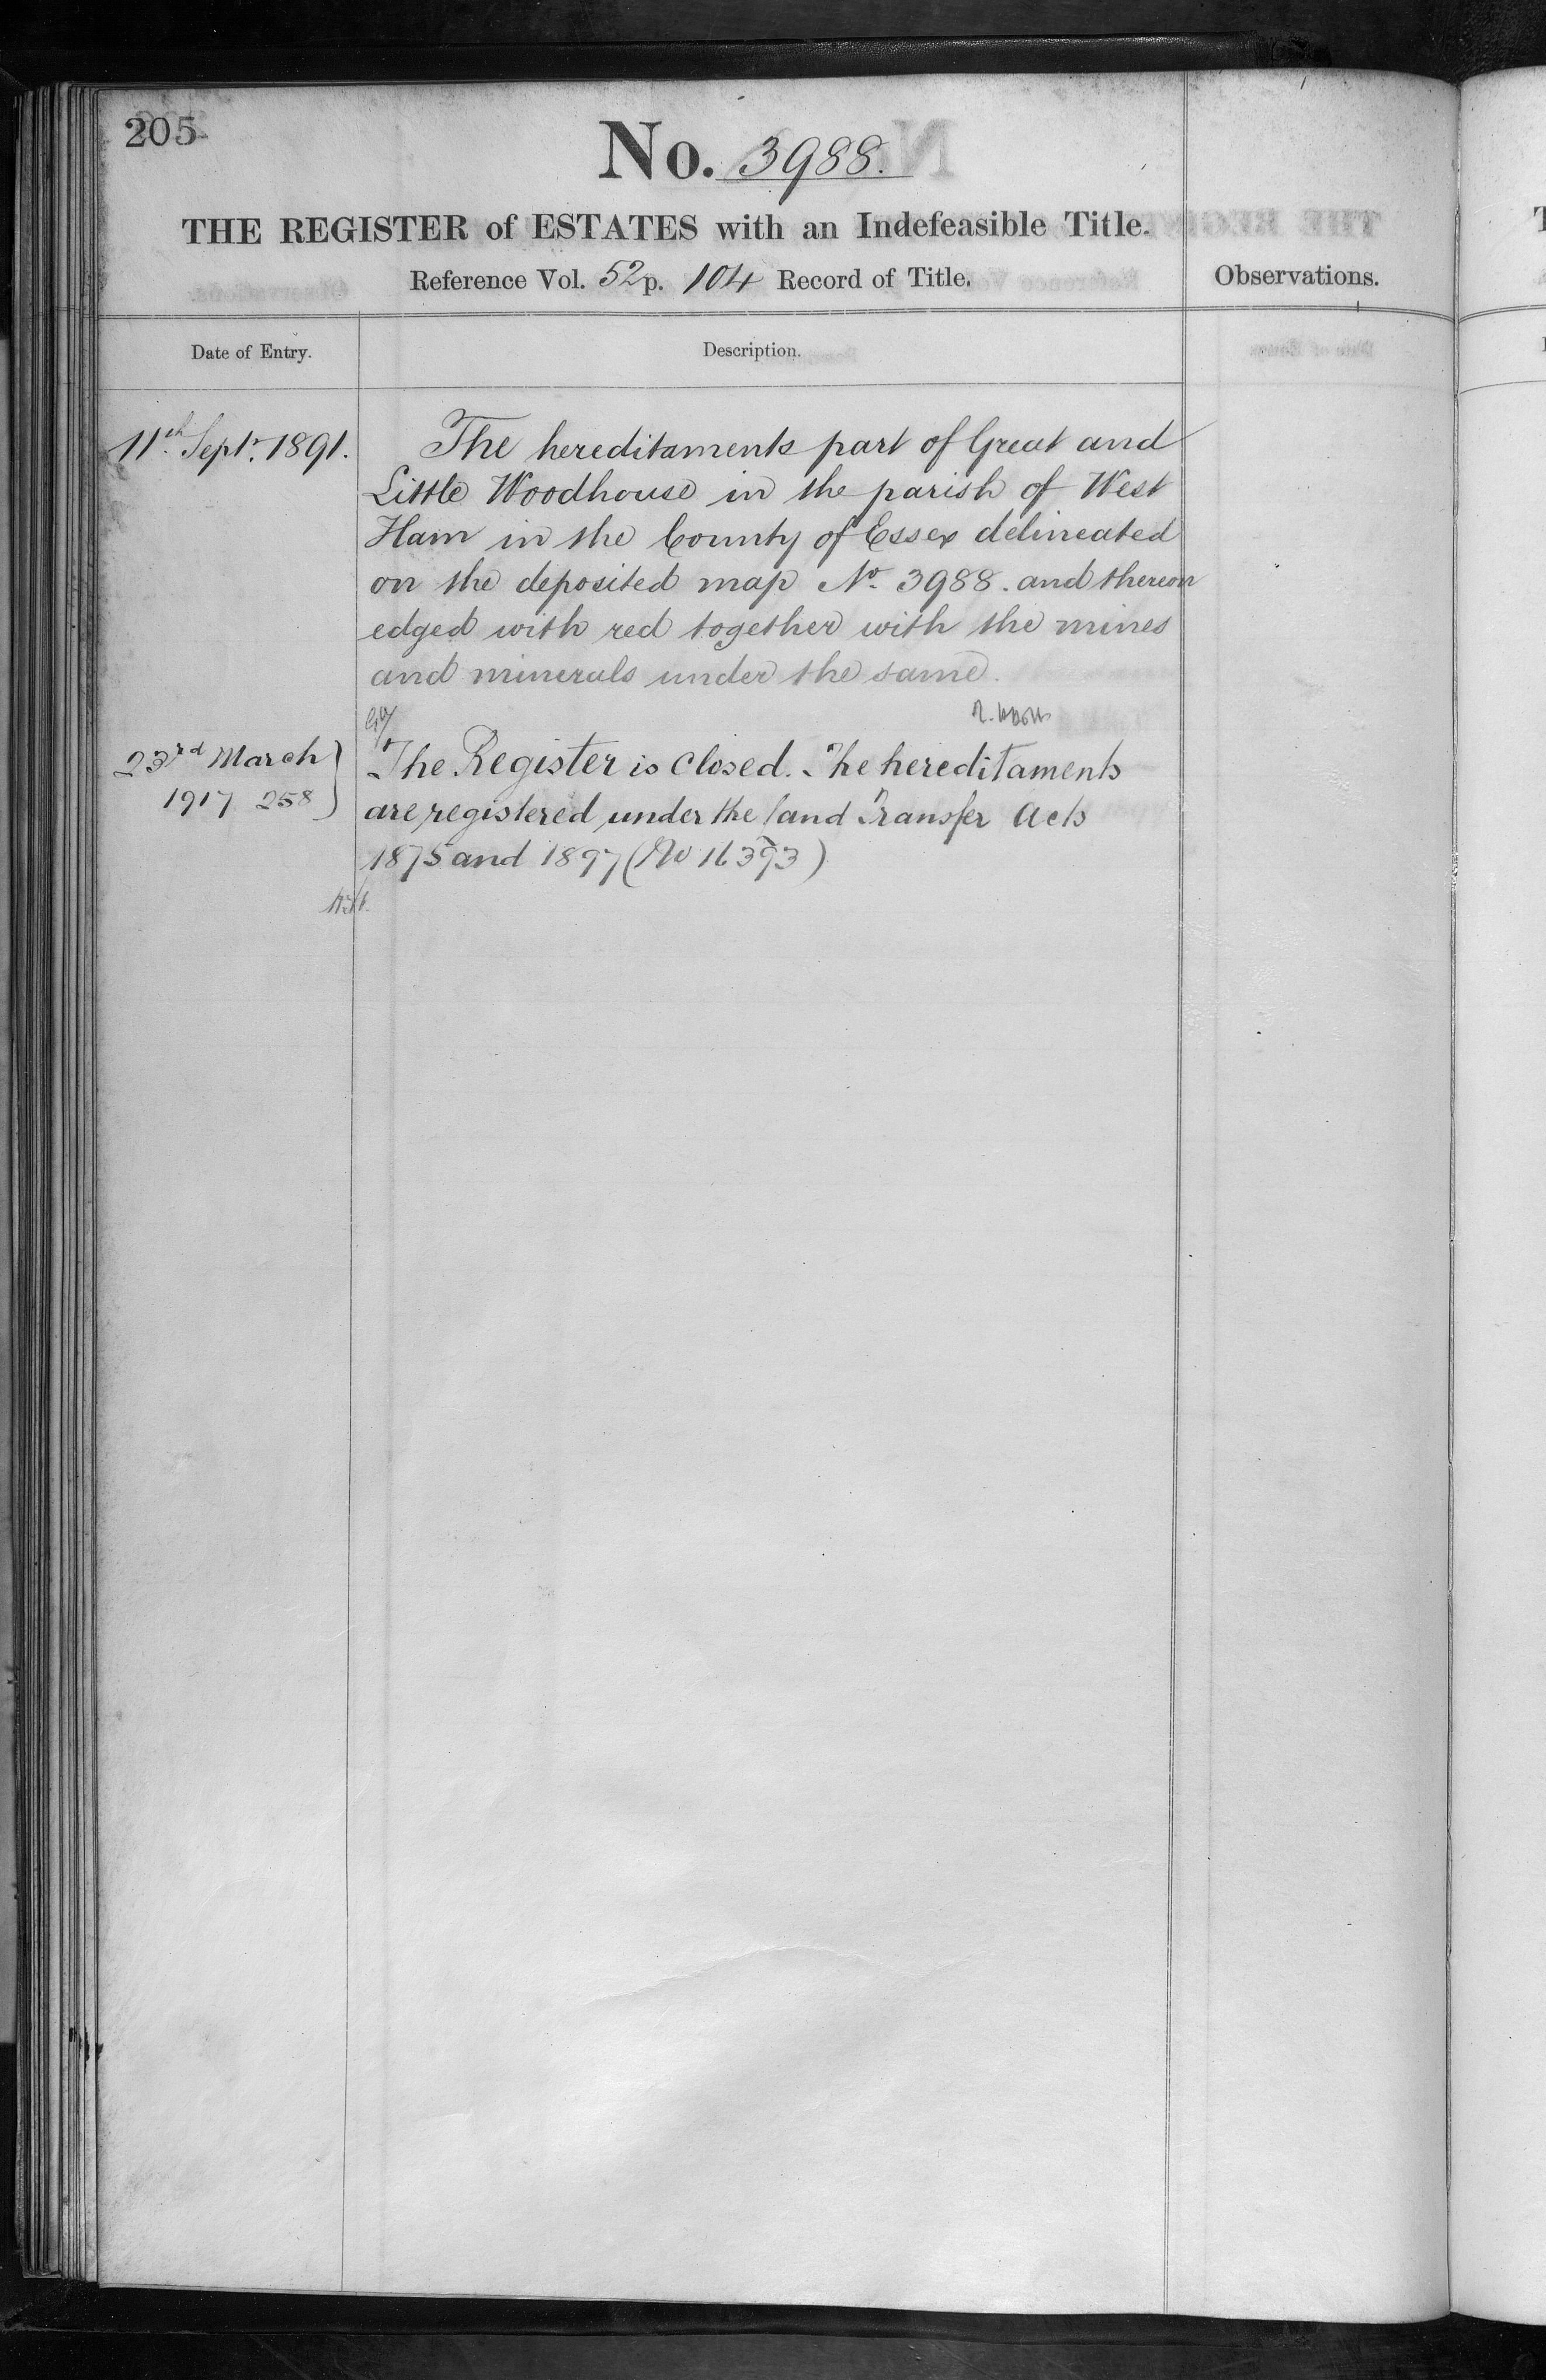 205
No. 3988.
THE REGISTER of ESTATES with an Indefeasible Title.
Reference Vol. 52 p. 104 Record of Title.
Observations.
Date of Entry.
Description.
11th Septr. 1891.
The hereditaments part of Great and
Little Woodhouse in the parish of West
Ham in the County of Essex delineated
on the deposited map No. 3988. and thereon
edged with red together with the mines
and minerals under the same.
23rd March
1917 258
The Register is closed. The hereditaments
are registered under the land Transfer Acts
1875 and 1897 (No 16393)